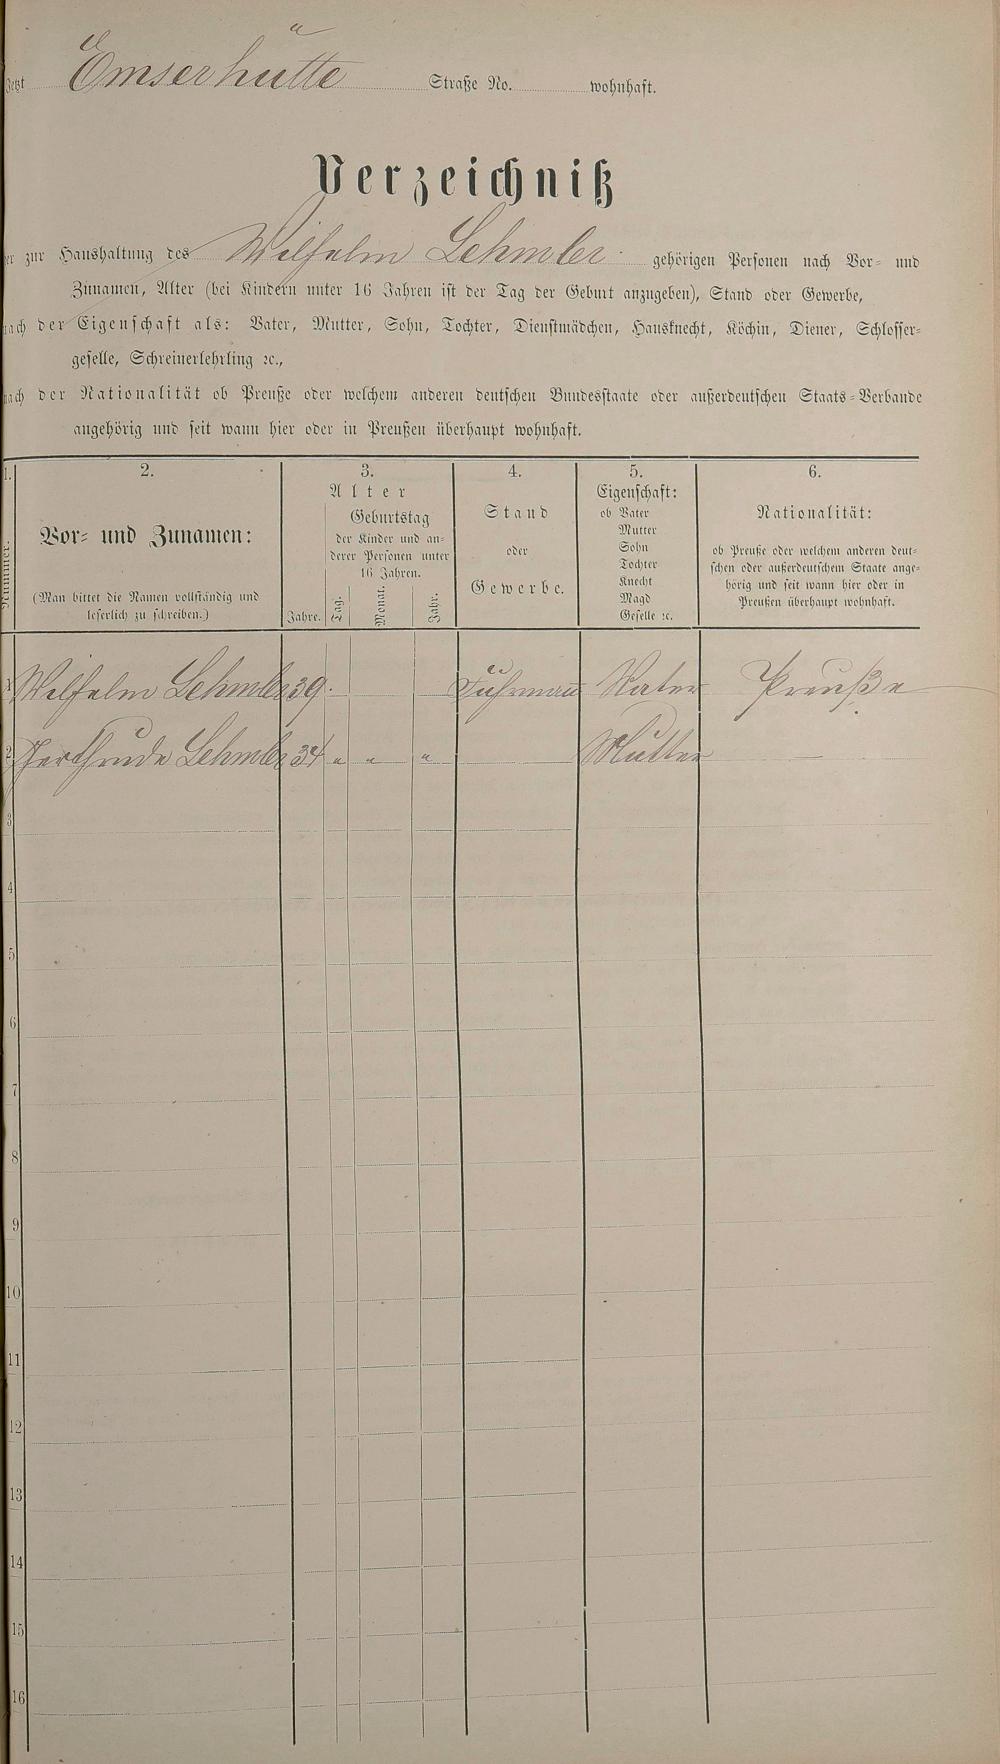 Jetzt Emserhütte Straße No. wohnhaft.
Verzeichniß
der zur Haushaltung des Wilhelm Lehmler gehörigen Personen nach Vor- und
Zunamen, Alter (bei Kindern unter 16 Jahren ist der Tag der Geburt anzugeben), Stand oder Gewerbe,
nach der Eigenschaft als: Vater, Mutter, Sohn, Tochter, Dienstmädchen, Hausknecht, Köchin, Diener, Schlosser-
geselle, Schreinerlehrling ꝛc.,
nach der Nationalität ob Preuße oder welchem anderen deutschen Bundesstaate oder außerdeutschen Staats-Verbande
angehörig und seit wann hier oder in Preußen überhaupt wohnhaft.
1. 2. 3. 4. 5. 6.
Nummer.
Vor- und Zunamen:
(Man bittet die Namen vollständig und
leserlich zu schreiben.)
Alter
Geburtstag
der Kinder und an-
derer Personen unter
16 Jahren.
Jahre. Tag. Monat. Jahr.
Stand
oder
Gewerbe.
Eigenschaft:
ob Vater
Mutter
Sohn
Tochter
Knecht
Magd
Geselle ꝛc.
Nationalität:
ob Preuße oder welchem anderen deut-
schen oder außerdeutschem Staate ange-
hörig und seit wann hier oder in
Preußen überhaupt wohnhaft.
1 Wilhelm Lehmler 39. Fuhrmann Vater Preuße
2 Gerthrude Lehmler 34 " " " Mutter —
3
4
5
6
7
8
9
10
11
12
13
14
15
16